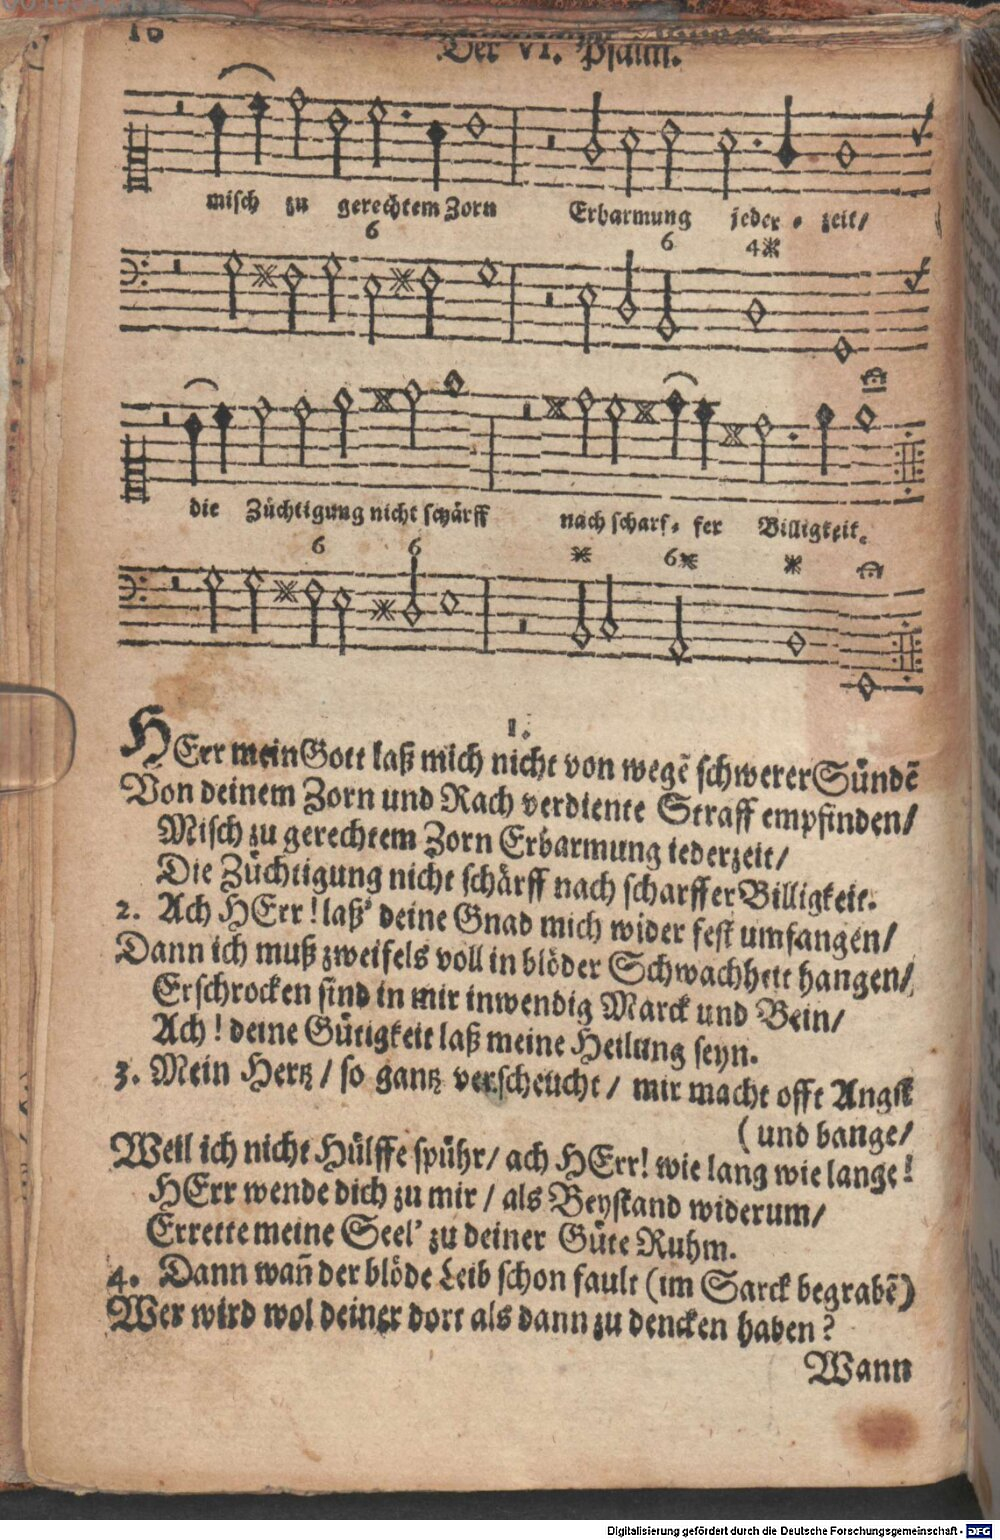 16
Der VI. Psalm.
misch zu gerechtem Zorn Erbarmung jeder⸗ zeit/
6 6 4
die Züchtigung nicht schärff nach scharf⸗ fer Billigkeit.
6 6 6
1.
HErr mein Gott laß mich nicht von wegẽ schwerer Sündẽ
Von deinem Zorn und Rach verdiente Straff empfinden/
Misch zu gerechtem Zorn Erbarmung iederzeit/
Die Züchtigung nicht schärff nach scharffer Billigkeit.
2. Ach HErr! laß' deine Gnad mich wider fest umfangen/
Dann ich muß zweifels voll in blöder Schwachheit hangen/
Erschrocken sind in mir inwendig Marck und Bein/
Ach! deine Gütigkeit laß meine Heilung seyn.
3. Mein Hertz/ so gantz verscheucht/ mir macht offt Angst
(und bange/
Weil ich nicht Hülffe spühr/ ach HErr! wie lang wie lange!
HErr wende dich zu mir/ als Beystand widerum/
Errette meine Seel' zu deiner Güte Ruhm.
4. Dann wañ der blöde Leib schon fault (im Sarck begrabẽ)
Wer wird wol deiner dort als dann zu dencken haben?
Wann
Digitalisierung gefördert durch die Deutsche Forschungsgemeinschaft - DFG